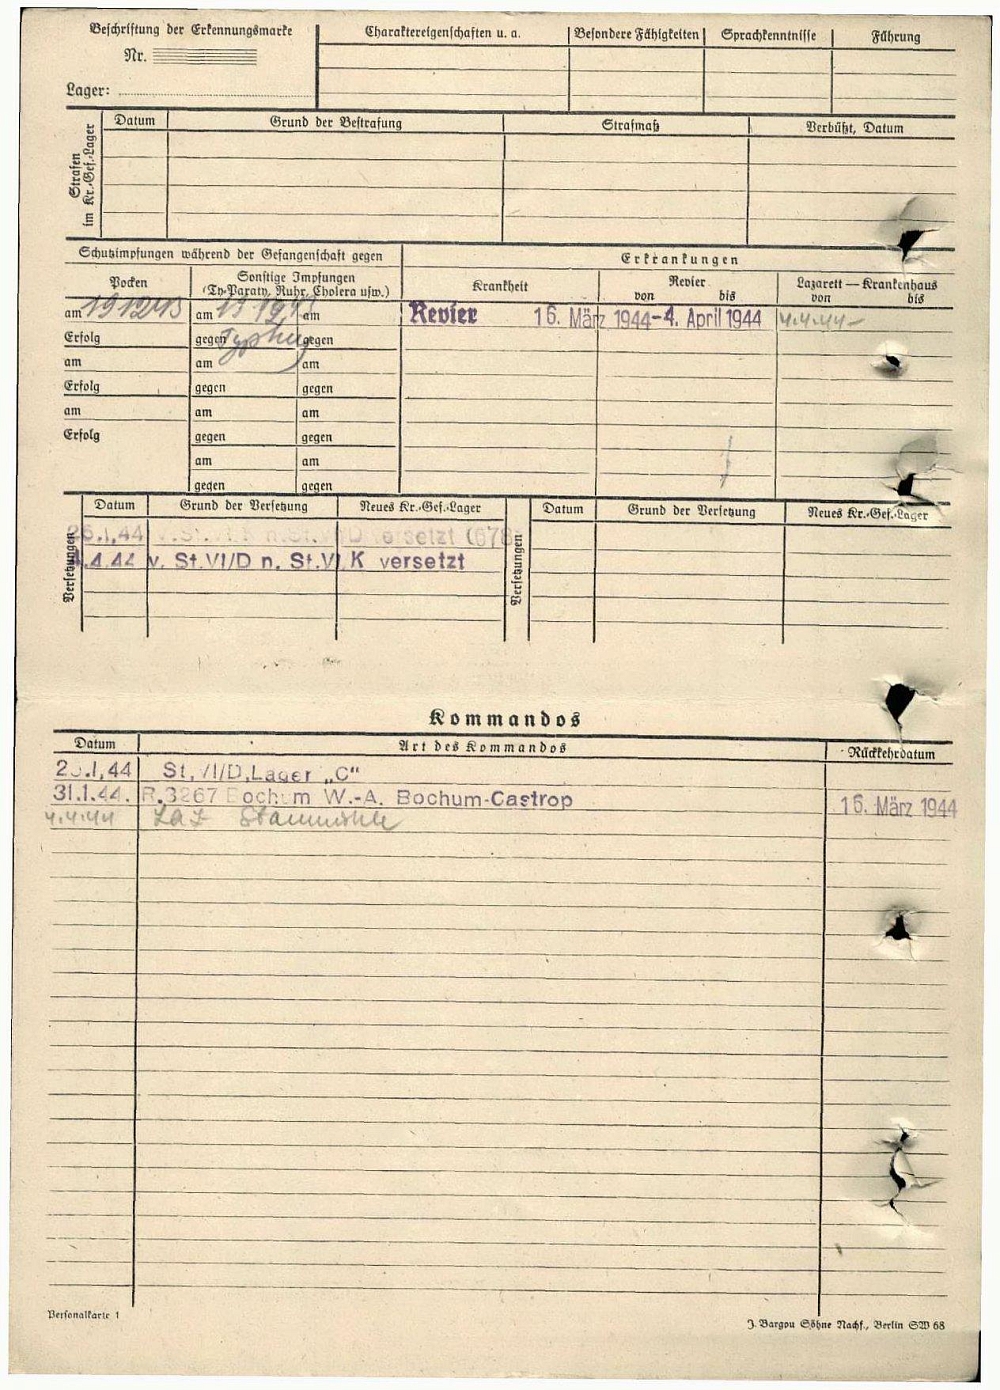 Beschriftung der Erkennungsmarke
Nr.
Lager:
Charaktereigenschaften u. a.
Besondere Fähigkeiten
Sprachkenntnisse
Führung
Strafen im Kr.-Gef.-Lager
Datum
Grund der Bestrafung
Strafmaß
Verbüßt, Datum
Schutzimpfungen während der Gefangenschaft gegen
Erkrankungen
Pocken
Sonstige Impfungen
(Ty-Paraty, Ruhr, Cholera usw.)
Krankheit
Revier
von bis
Lazarett — Krankenhaus
von bis
am 19 12 43 am am Revier 16. März 1944 - 4. April 1944 4.4.44 -
Erfolg gegen Typhus gegen
am am am
Erfolg gegen gegen
am am am
Erfolg gegen gegen
am am
gegen gegen
Versetzungen
Datum Grund der Versetzung Neues Kr.-Gef.-Lager
26.1.44 versetzt
4.4.44 v. St.VI/D n. St.VI K versetzt
Versetzungen
Datum Grund der Versetzung Neues Kr.-Gef.-Lager
Kommandos
Datum Art des Kommandos Rückkehrdatum
St. VI/D, Lager „C“
31.1.44. R.3267 Bochum W.-A. Bochum-Castrop 16. März 1944
4.4.44 Laz Staumühle
Personalkarte 1
J. Bargou Söhne Nachf., Berlin SW 68